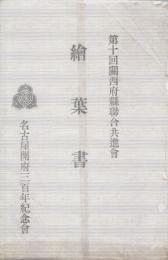 第十回關西府縣聯合共進會
繪葉書
名古屋開府三百年紀念會